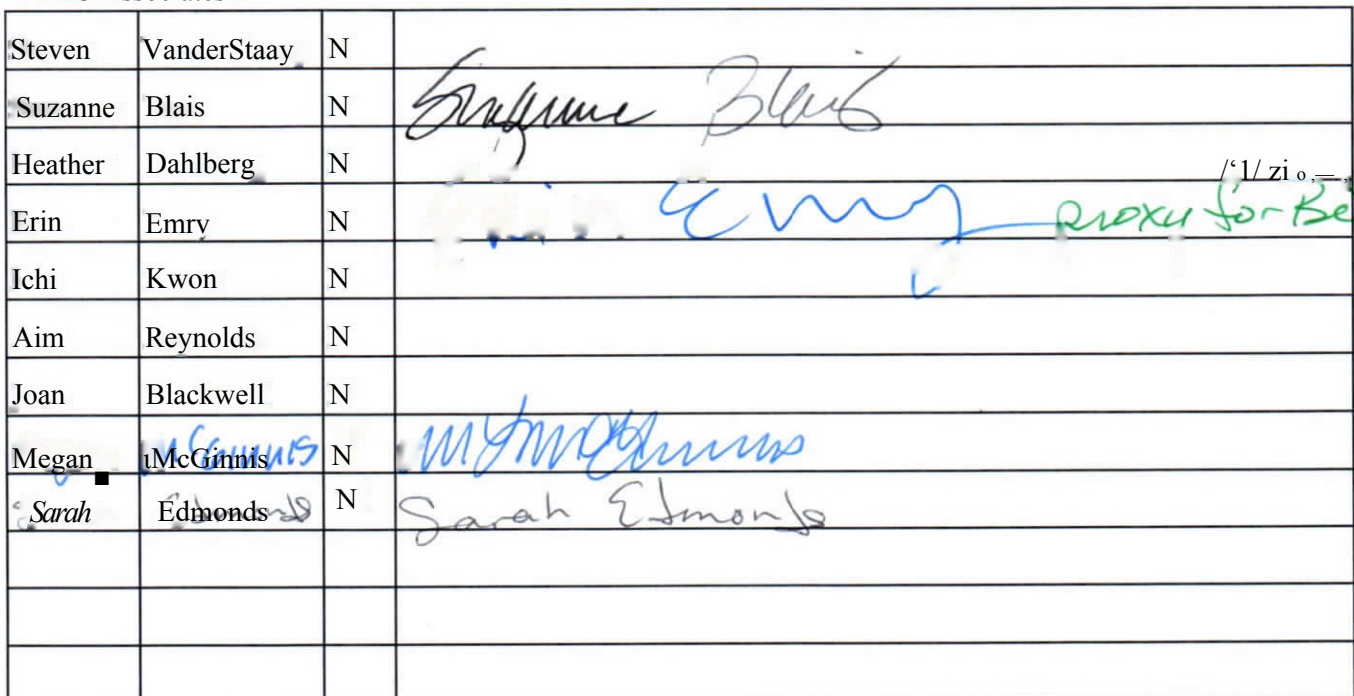 Steven VanderStaay N
Suzanne Blais N Suzanne Blais
Heather Dahlberg N
Erin Emry N Emry proxy for Be
Ichi Kwon N
Aim Reynolds N
Joan Blackwell N
Megan McGinnis N
Sarah Edmonds N Sarah Edmonds